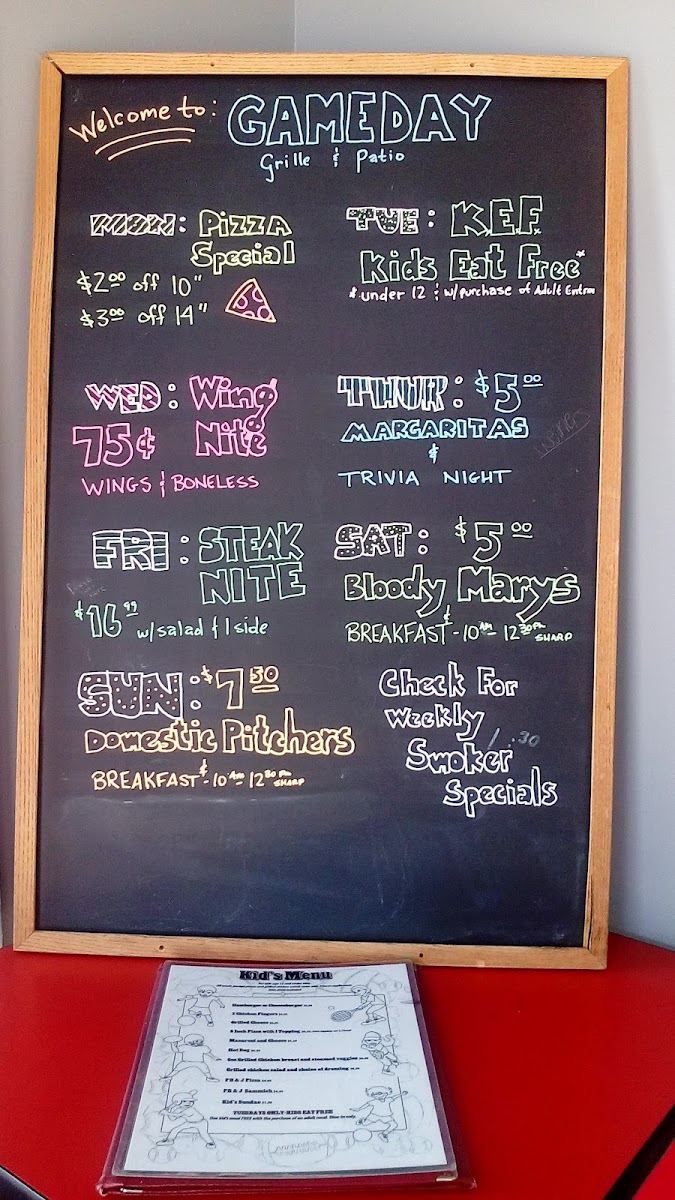 Welcome to: GAMEDAY
Grille & Patio
MON: Pizza
Special
$2.00 off 10"
$3.00 off 14"
TUE: K.E.F.
Kids Eat Free*
* under 12 & w/purchase of Adult Entree
WED: Wing
75¢ Nite
WINGS & BONELESS
THUR: $5.00
MARGARITAS
&
TRIVIA NIGHT
FRI: STEAK
NITE
$16.99 w/salad & 1 side
SAT: $5.00
Bloody Marys
&
BREAKFAST - 10AM - 12:30PM SHARP
SUN: $7.50
Domestic Pitchers
&
BREAKFAST - 10AM - 12:30PM SHARP
Check For
Weekly
Smoker
Specials
Kid's Menu
Hamburger or Cheeseburger
2 Chicken Fingers
Grilled Cheese
8 Inch Pizza with 1 Topping
Macaroni and Cheese
Hot Dog
6oz Grilled Chicken breast and steamed veggies
Grilled chicken salad and choice of dressing
PB & J Pizza
PB & J Sammich
Kid's Sundae
TUESDAYS ONLY-KIDS EAT FREE
One kid's meal FREE with the purchase of an adult meal. Dine in only.